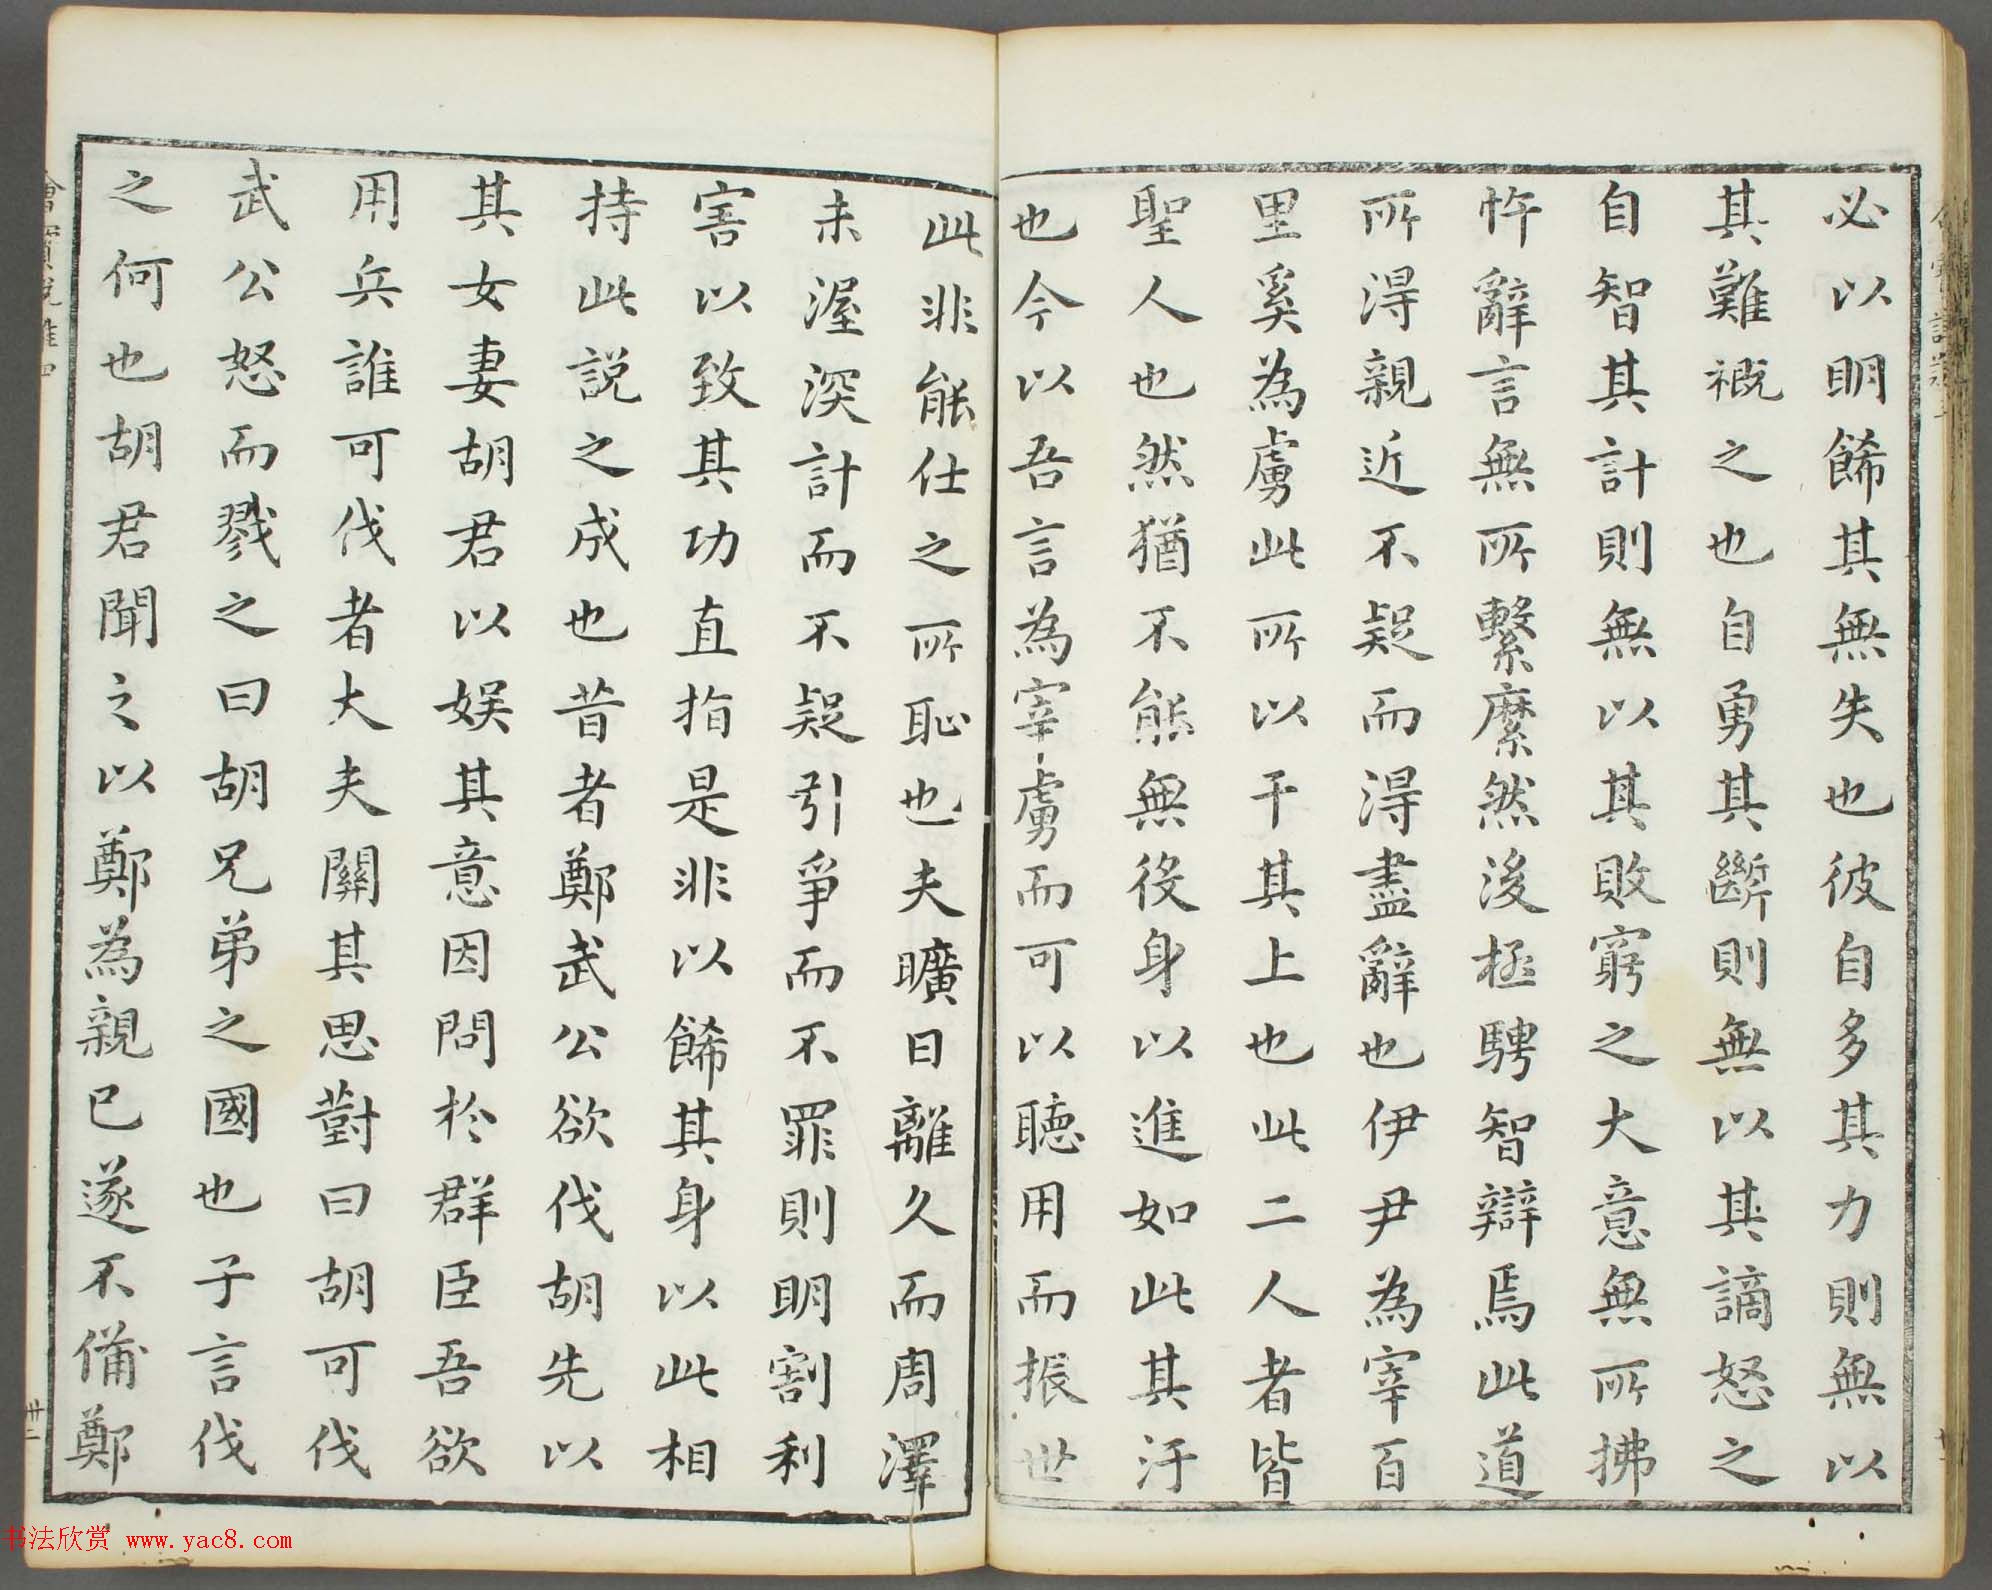 必以明餙其無失也彼自多其力則無以
其難概之也自勇其斷則無以其謫怒之
自智其計則無以其敗窮之大意無所拂
忤辭言無所繫縻然後極騁智辯焉此道
所得親近不疑而得盡辭也伊尹為宰百
里奚為虜此所以干其上也此二人者皆
聖人也然猶不能無役身以進如此其汙
也今以吾言為宰虜而可以聽用而振世
此非能仕之所恥也夫曠日離久而周澤
未渥深計而不疑引爭而不罪則明割利
害以致其功直指是非以餙其身以此相
持此說之成也昔者鄭武公欲伐胡先以
其女妻胡君以娱其意因問於群臣吾欲
用兵誰可伐者大夫關其思對曰胡可伐
武公怒而戮之曰胡兄弟之國也子言伐
之何也胡君聞之以鄭為親已遂不備鄭
卅二
书法欣赏 www.yac8.com